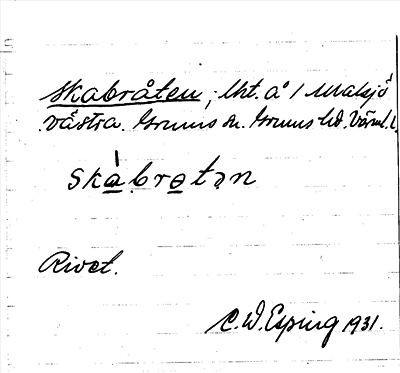 Skabråten, lht. å 1 Malsjö
västra. Grums sn. Grums hd. Värml. l.
skàbrotən
Rivet.
C.W. Esping 1931.